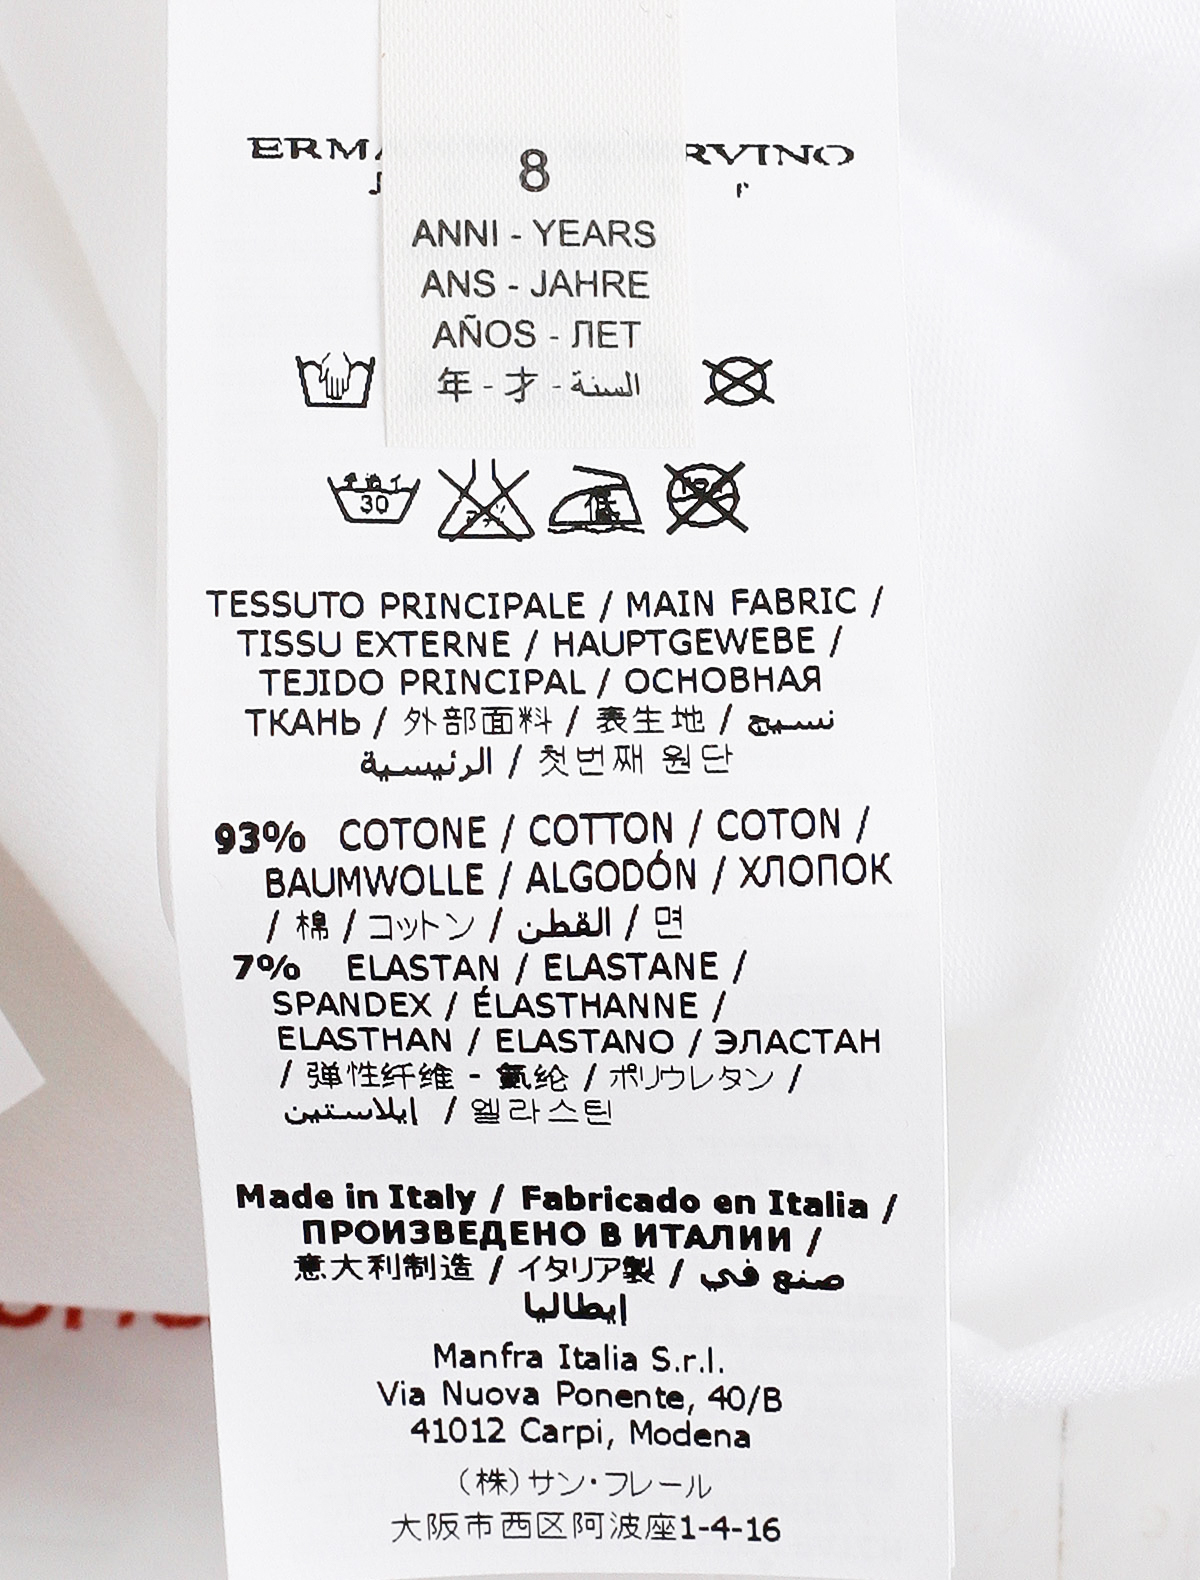 8
ANNI - YEARS
ANS - JAHRE
AÑOS - ЛЕТ
年 - 才 - السنة
30
TESSUTO PRINCIPALE / MAIN FABRIC /
TISSU EXTERNE / HAUPTGEWEBE /
TEJIDO PRINCIPAL / ОСНОВНАЯ
ТКАНЬ / 外部面料 / 表生地 / نسيج
الرئيسية / 첫번째 원단
93% COTONE / COTTON / COTON /
BAUMWOLLE / ALGODÓN / ХЛОПОК
/ 棉 / コットン / القطن / 면
7% ELASTAN / ELASTANE /
SPANDEX / ÉLASTHANNE /
ELASTHAN / ELASTANO / ЭЛАСТАН
/ 弹性纤维 - 氨纶 / ポリウレタン /
إيلاستين / 엘라스틴
Made in Italy / Fabricado en Italia /
ПРОИЗВЕДЕНО В ИТАЛИИ /
意大利制造 / イタリア製 / صنع في
إيطاليا
Manfra Italia S.r.l.
Via Nuova Ponente, 40/B
41012 Carpi, Modena
(株)サン・フレール
大阪市西区阿波座1-4-16